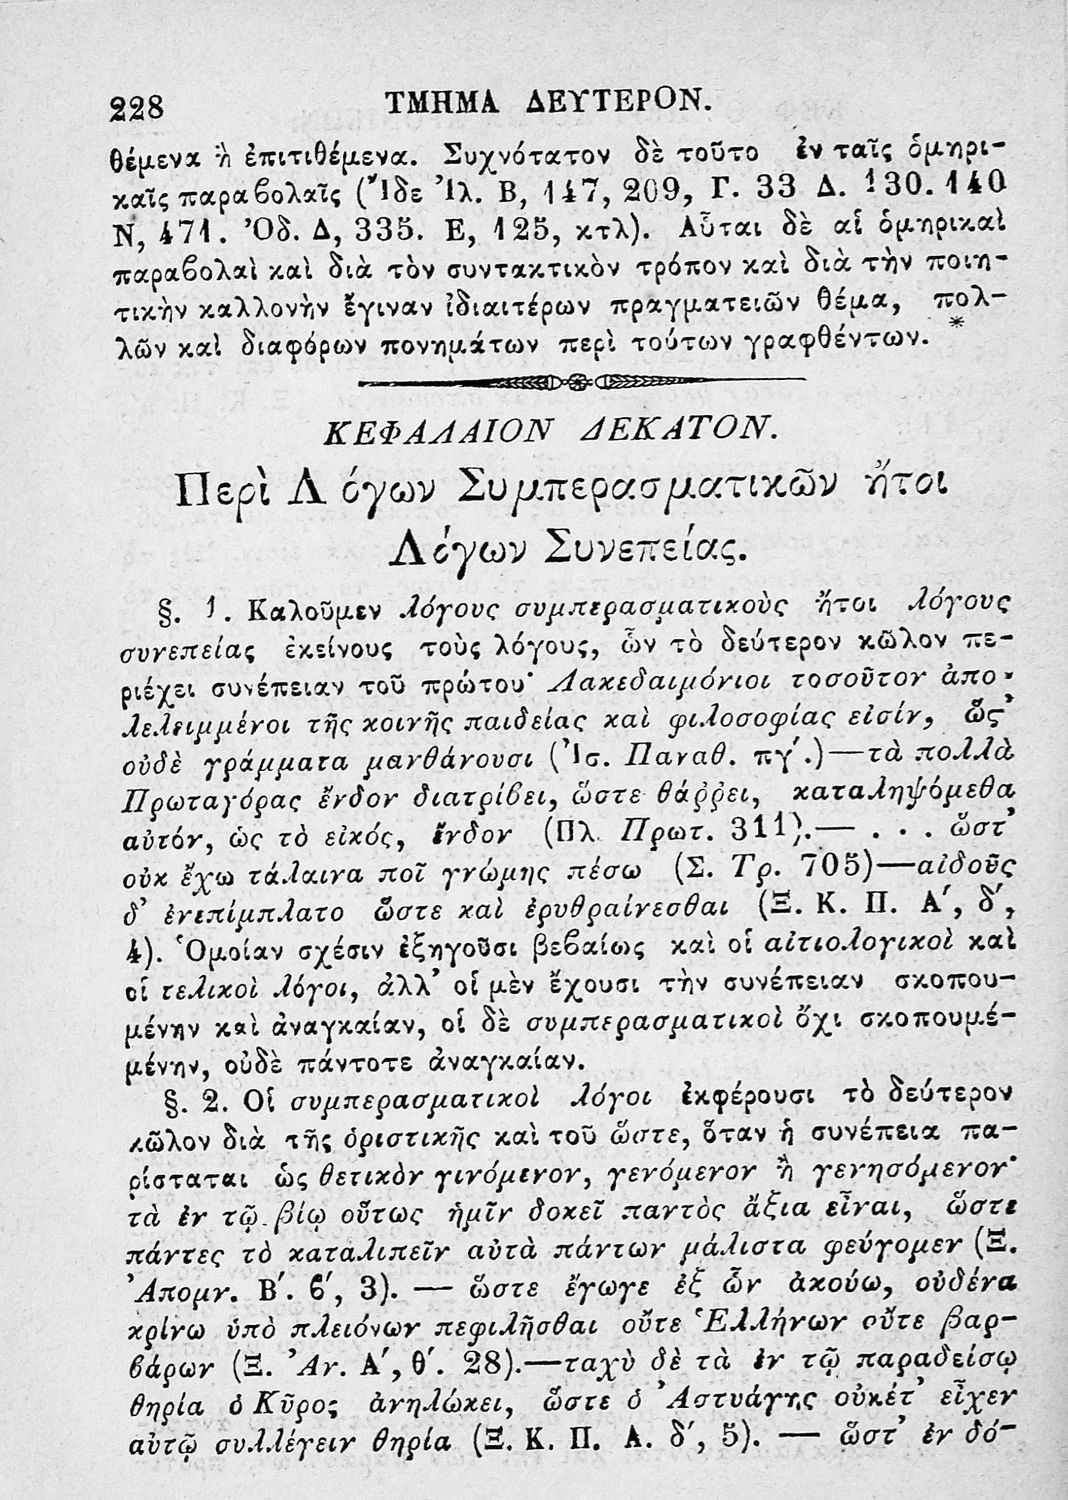 228 ΤΜΗΜΑ ΔΕΥΤΕΡΟΝ.
θέμενα ἢ ἐπιτιθέμενα. Συχνότατον δὲ τοῦτο ἐν ταῖς ὁμηρι-
καῖς παραβολαῖς (Ἴδε Ἰλ. Β, 147, 209, Γ. 33 Δ. 130. 140
Ν, 471. Ὀδ. Δ, 335. Ε, 125, κτλ). Αὗται δὲ αἱ ὁμηρικαὶ
παραβολαὶ καὶ διὰ τὸν συντακτικὸν τρόπον καὶ διὰ τὴν ποιη-
τικὴν καλλονὴν ἔγιναν ἰδιαιτέρων πραγματειῶν θέμα, πολ-
λῶν καὶ διαφόρων πονημάτων περὶ τούτων γραφθέντων. *
ΚΕΦΑΛΑΙΟΝ ΔΕΚΑΤΟΝ.
Περὶ Λόγων Συμπερασματικῶν ἤτοι
Λόγων Συνεπείας.
§. 1. Καλοῦμεν λόγους συμπερασματικοὺς ἤτοι λόγους
συνεπείας ἐκείνους τοὺς λόγους, ὧν τὸ δεύτερον κῶλον πε-
ριέχει συνέπειαν τοῦ πρώτου· Λακεδαιμόνιοι τοσοῦτον ἀπο-
λελειμμένοι τῆς κοινῆς παιδείας καὶ φιλοσοφίας εἰσίν, ὥς᾿
οὐδὲ γράμματα μανθάνουσι (Ἰσ. Παναθ. πγ΄.)—τὰ πολλὰ
Πρωταγόρας ἔνδον διατρίβει, ὥστε θάῤῥει, καταληψόμεθα
αὐτόν, ὡς τὸ εἰκός, ἔνδον (Πλ. Πρωτ. 311).— . . . ὥστ᾿
οὐκ ἔχω τάλαινα ποῖ γνώμης πέσω (Σ. Τρ. 705)—αἰδοῦς
δ᾿ ἐνεπίμπλατο ὥστε καὶ ἐρυθραίνεσθαι (Ξ. Κ. Π. Α΄, δ΄,
4). Ὁμοίαν σχέσιν ἐξηγοῦσι βεβαίως καὶ οἱ αἰτιολογικοὶ καὶ
οἱ τελικοὶ λόγοι, ἀλλ᾿ οἱ μὲν ἔχουσι τὴν συνέπειαν σκοπου-
μένην καὶ ἀναγκαίαν, οἱ δὲ συμπερασματικοὶ ὄχι σκοπουμέ-
μένην, οὐδὲ πάντοτε ἀναγκαίαν.
§. 2. Οἱ συμπερασματικοὶ λόγοι ἐκφέρουσι τὸ δεύτερον
κῶλον διὰ τῆς ὁριστικῆς καὶ τοῦ ὥστε, ὅταν ἡ συνέπεια πα-
ρίσταται ὡς θετικὸν γινόμενον, γενόμενον ἢ γενησόμενον·
τὰ ἐν τῷ βίῳ οὕτως ἡμῖν δοκεῖ παντὸς ἄξια εἶναι, ὥστε
πάντες τὸ καταλιπεῖν αὐτὰ πάντων μάλιστα φεύγομεν (Ξ.
Ἀπομν. Β΄. β΄, 3). — ὥστε ἔγωγε ἐξ ὧν ἀκούω, οὐδένα
κρίνω ὑπὸ πλειόνων πεφιλῆσθαι οὔτε Ἑλλήνων οὔτε βαρ-
βάρων (Ξ. Ἀν. Α΄, θ΄. 28).—ταχὺ δὲ τὰ ἐν τῷ παραδείσῳ
θηρία ὁ Κῦρος ἀνηλώκει, ὥστε ὁ Ἀστυάγης οὐκέτ᾿ εἶχεν
αὐτῷ συλλέγειν θηρία (Ξ. Κ. Π. Α. δ΄, 5). — ὥστ᾿ ἐν δό-